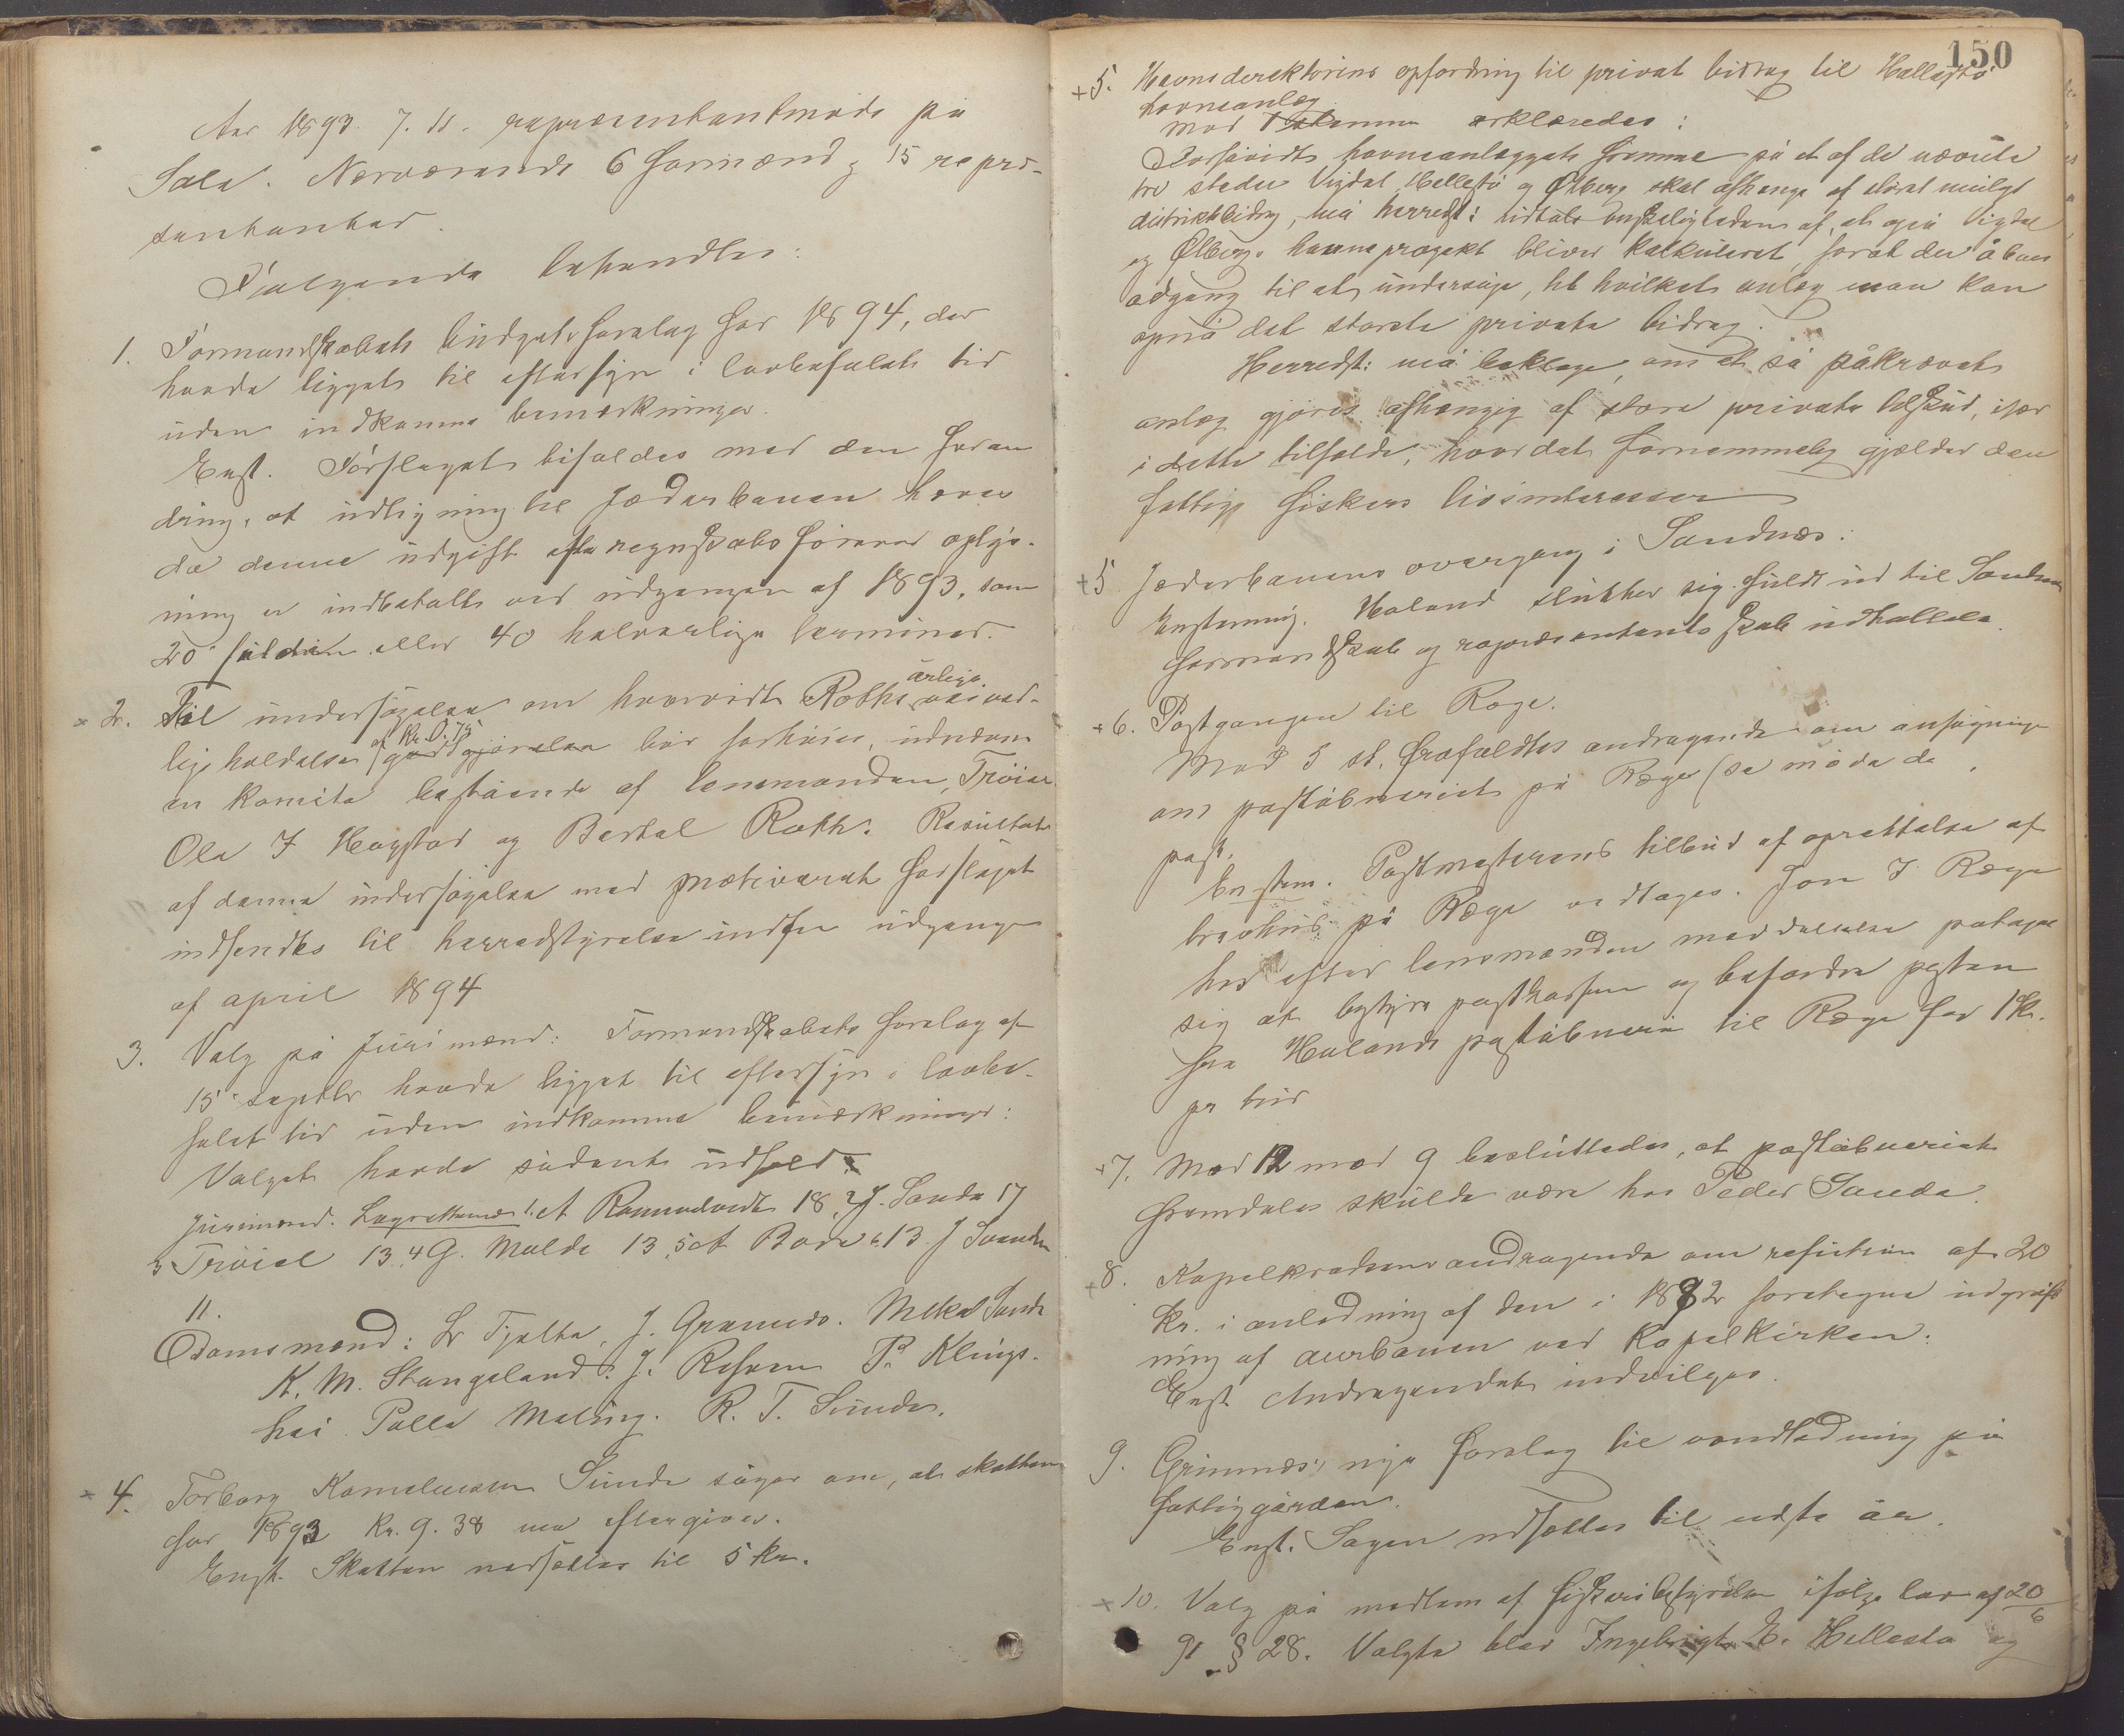 Aar 1893. 7. 11. repræsentantmøde på
Sola. Nærværende 6 formænd og 15 repræ-
sentanter.
Følgende behandles:
1. Formandskabets budgetsforslag for 1894, der
havde ligget til eftersyn i lovbefalet tid
uden indkomne bemærkninger.
Enst. Forslaget bifaldes med den foran
dring, at udligning til Jæderbanen hæves
da denne udgift efter regnskabsførerens oplys-
ning er indbetalt ved udgangen af 1893, som
20 fulde eller 40 halvaarlige terminer.
2. Til undersøgelse om hvorvidt Roths årlige veived-
ligeholdelse af Kr. 0.75 godtgjørelse bør forhøies, udnævnes
en komite bestående af lensmanden, Trøien
Ola I Hogstad og Bertal Roth. Resultatet
af denne undersøgelse med motiveret forslaget
indsendes til herredstyrelsen inden udgangen
af april 1894
3. Valg på Jurimænd: Formandskabets forslag af
15 septbr havde ligget til eftersyn i lovbe-
falet tid uden indkomne bemærkninger:
Valget havde sådant udfald:
Jurimænd. Lagrettemænd 1. A Rommedvedt 18, 2 J. Sande 17
3 Trøiel 13, 4 G. Molde 13, 5 A Bore 13. J Svende
11.
Domsmænd: L Tjelta, J. Grannes. Mikal Sande
K. M. Stangeland. J. Refven P. Klings-
hei Palle Meling. R. T. Sunde.
× 4. Torborg Korneliussen Sunde søger om, at skatten
for 1893 Kr. 9.38 må eftergives.
Enst. Skatten nedsættes til 5 kr.
150
+5. Havnedirektørens opfordring til privat bidrag til Hellestø
havneanlæg
mod 1 stemme erklæredes:
Forsåvidt havneanlæggets fremme på et af de nævnte
tre steder Vigdel, Hellestø og Ølberg skal afhænge af størst muligt
distriktbidrag, må herredst: udtale ønskeligheden af, at også Vigdel
og Ølbergs havneprojekt bliver kalkuleret, forat der åbnes
adgang til at undersøge, til hvilket anlæg man kan
opnå det største private bidrag.
Herredst: må beklage, om et så påkrævet
anlæg gjøres afhængig af større private tilskud, især
i dette tilfælde, hvor det fornemmelig gjælder den
fattige fiskers livsinteresser
+5 Jæderbanens overgang i Sandnes:
Enstemmig. Haland slutter sig fuldt ud til Sandnes
formandskab og repræsentantskab udtallelse.
+6. Postgangen til Rege.
Med 5 st. frafaldtes andragende om ansøgning
om poståbneriet på Rege (se møde de
post.
Enstem. Postmesterens tilbud af oprettelse af
brevhus på Rege vedtages. Jon I Rege
har efter lensmanden meddelelse påtaget
sig at bestyre postkassen og befordre posten
fra Halands poståbneri til Rege for 1 kr.
pr tur
+7. Med 12 mod 9 besluttedes, at poståbneriet
fremdeles skulde være hos Peder Sande.
+8. Kapelkredsens andragende om refusion af 20
kr. i anledning af den i 1892 foretagne udgrøft
ning af aurbanen ved Kapelkirken:
Enst. Andragendet indvilges.
9. Grimnes's nye forslag til vandledning på
fattiggården.
Enst. Sagen udsættes til næste år.
× 10. Valg på medlem af fiskeribestyrelsen ifølge lov af 20/6
91 § 28. Valgte blev Ingebrigt E. Hellestø og